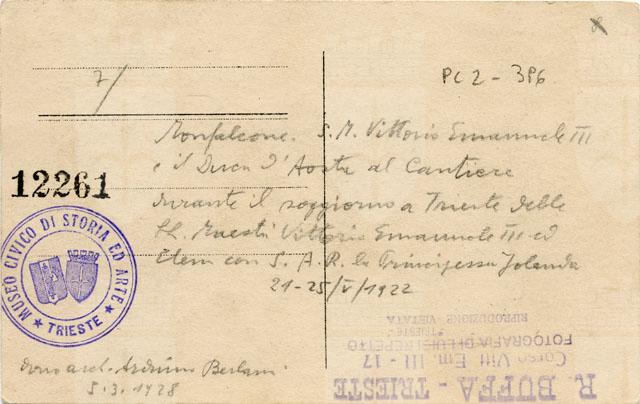 7/
PC 2 - 396
Monfalcone. S. M. Vittorio Emanuele III
e il Duca d'Aosta al Cantiere
durante il soggiorno a Trieste delle
LL. Maestà Vittorio Emanuele III ed
Elena con S. A. R. la Principessa Jolanda
21-25/V/1922
12261
MUSEO CIVICO DI STORIA ED ARTE
★ TRIESTE ★
dono arch. Arduino Berlam
5.3.1928
R. BUFFA - TRIESTE
Corso Vitt. Em. III - 17
FOTOGRAFIA DI LUIGI REPETTO
TRIESTE
RIPRODUZIONE VIETATA